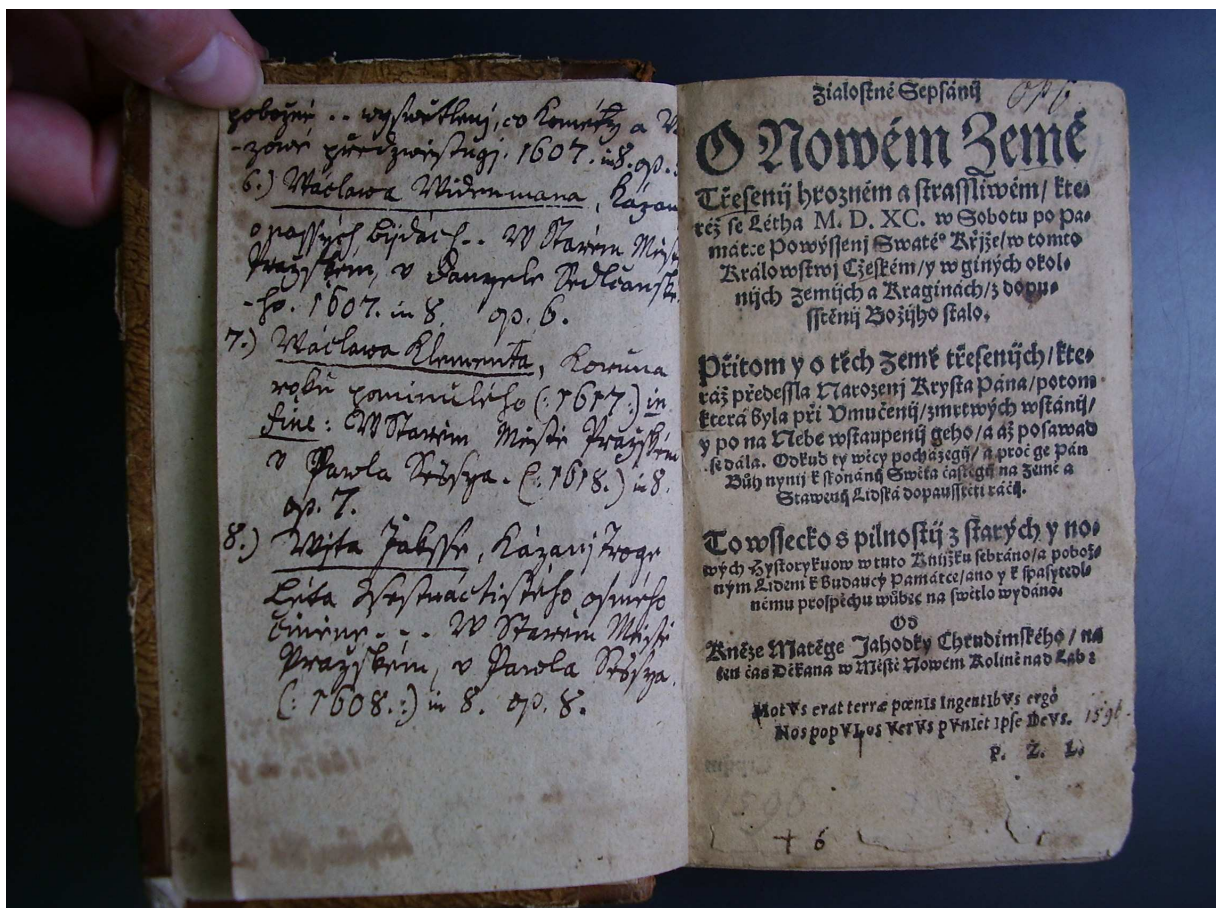 pobožné .. wyswětlenj, co Kométy a
-zowé předzwěstugj. 1607. in 8. op.
6.) Wáclawa Widenmana, Kázan
o nassých bijdách.. W Starém Měs
Pražském, v Danyele Sedlčansk
-ho. 1607. in 8. op. 6.
7.) Wáclawa Klementa, Koruna
roku pominulého (: 1617 :) in
fine: W Starém Městě Pražském
v Pawla Sessya. (: 1618.) in 8.
op. 7.
8.) Wjta Jakssy, Kázanj troge
Léta Ssestnáctistého osmého
činěné ... W Starém Městě
Pražském, v Pawla Sessya.
(: 1608. :) in 8. op. 8.
Zialostné Sepsánij
O Nowém Země
Třesenij hrozném a strasslivém / kte-
réž se Létha M. D. XC. w Sobotu po Pa-
mátce Powýssenj Swatéº Křjže / w tomto
Králowstwj Cžeském / y w giných okol-
nijch Zemijch a Kraginách / z dopu-
sstěnij Božijho stalo.
Přitom y o těch Země třesenijch / kte-
ráž předessla Narozenj Krysta Pána / potom
která byla při Vmučenij / zmrtwých wstánij /
y po na Nebe wstaupenij geho / a až posawad
se dála. Odkud ty wěcy pocházegij / a proč ge Pán
Bůh nynij k skonánij Swěta častěgij na Země a
Stawenij Lidská dopausstěti ráčij.
To wssecko s pilnostij z starých y no-
wých Hystorykuow w tuto Knijžku sebráno / a pobož-
ným Lidem k Budaucý Památce / ano y k spasytedl-
nému prospěchu wůbec na swětlo wydáno.
Od
Kněze Matěge Jahodky Chrudimského / na
ten čas Děkana w Městě Nowém Kolině nad Lab:
MotVs erat terræ pœnIs IngentIbVs ergò
Nos popVLos VerVs pVnIet Ipse DeVs. 1596.
P. Z. L.
1596
+ 6